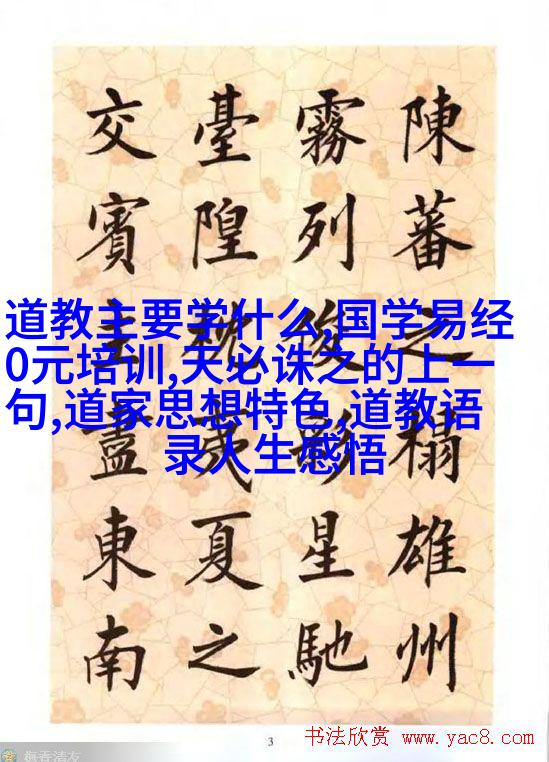 陳蕃之榻雄州
霧列俊彩星馳
臺隍枕夷夏之
交賓主盡東南
道教主要学什么,国学易经
0元培训,天必诛之的上一
句,道家思想特色,道教语
录人生感悟
3
书法欣赏 www.yac8.com